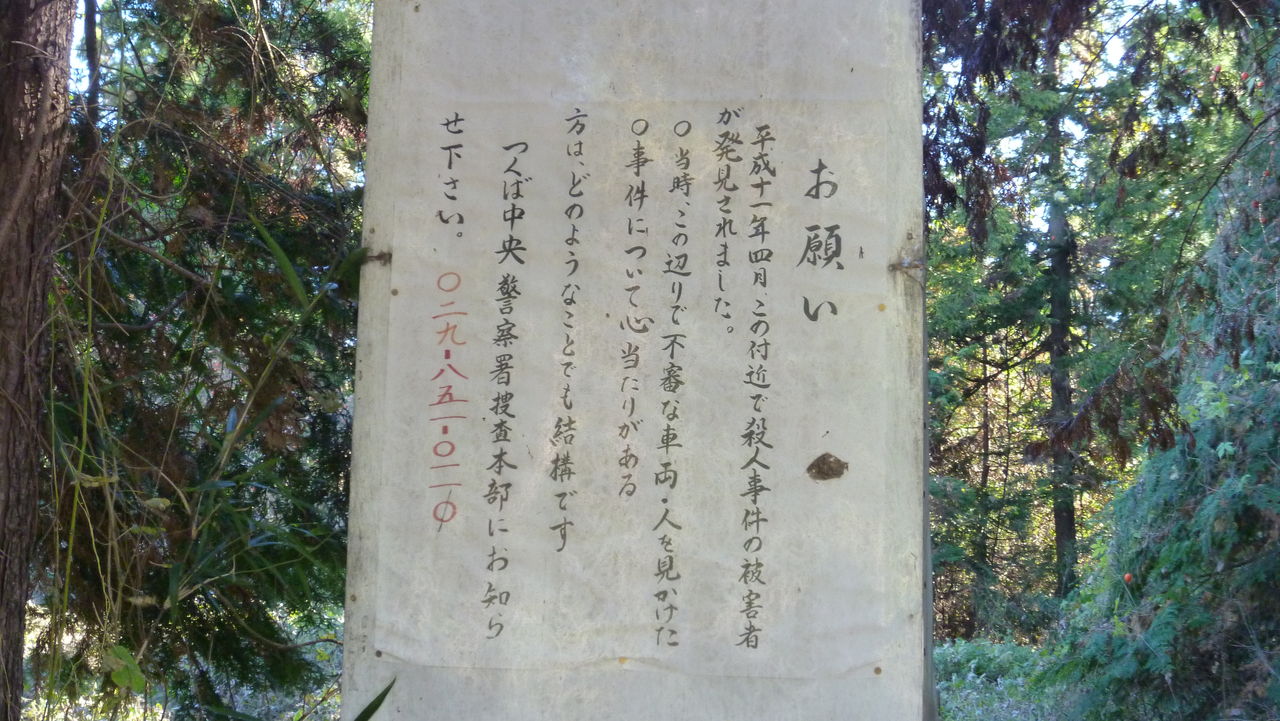 お願い
平成十一年四月この付近で殺人事件の被害者
が発見されました。
〇当時、この辺りで不審な車両・人を見かけた
〇事件について心当たりがある
方は、どのようなことでも結構です
つくば中央警察署捜査本部にお知ら
せ下さい。 〇二九-八五一-〇一一〇